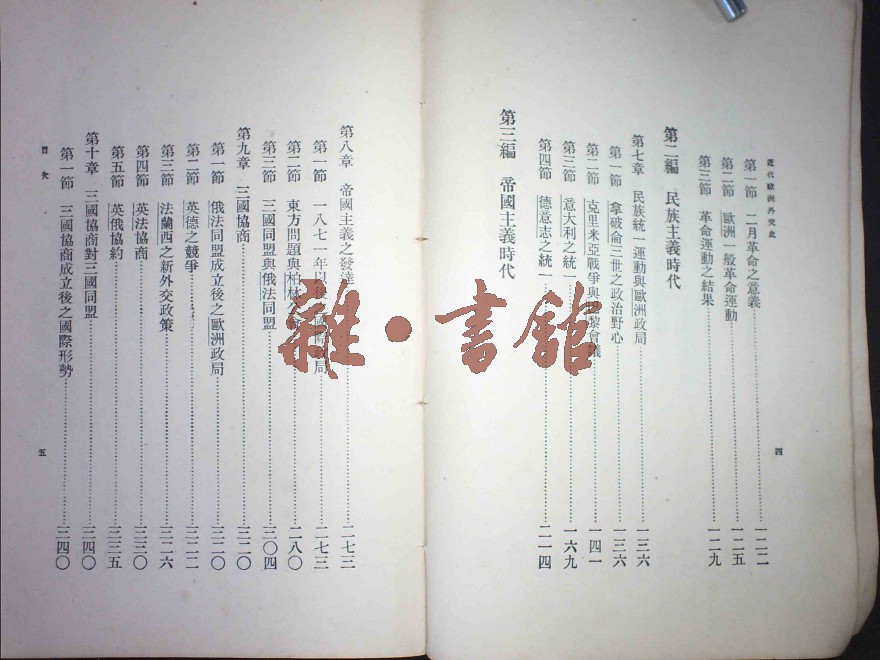 近代歐洲外交史
四
第一節 二月革命之意義 一二二
第二節 歐洲一般革命運動 一二五
第三節 革命運動之結果 一二九
第二編 民族主義時代
第七章 民族統一運動與歐洲政局 一三六
第一節 拿破侖三世之政治野心 一三六
第二節 克里米亞戰爭與巴黎會議 一四一
第三節 意大利之統一 一六九
第四節 德意志之統一 二一四
第三編 帝國主義時代
第八章 帝國主義之發達 二七三
第一節 一八七一年以後 國際政局 二七三
第二節 東方問題與柏林 二八〇
第三節 三國同盟與俄法同盟 三〇四
第九章 三國協商 三二〇
第一節 俄法同盟成立後之歐洲政局 三二〇
第二節 英德之競爭 三二二
第三節 法蘭西之新外交政策 三二六
第四節 英法協商 三三〇
第五節 英俄協約 三三五
第十章 三國協商對三國同盟 三四〇
第一節 三國協商成立後之國際形勢 三四〇
目次
五
雜·書館